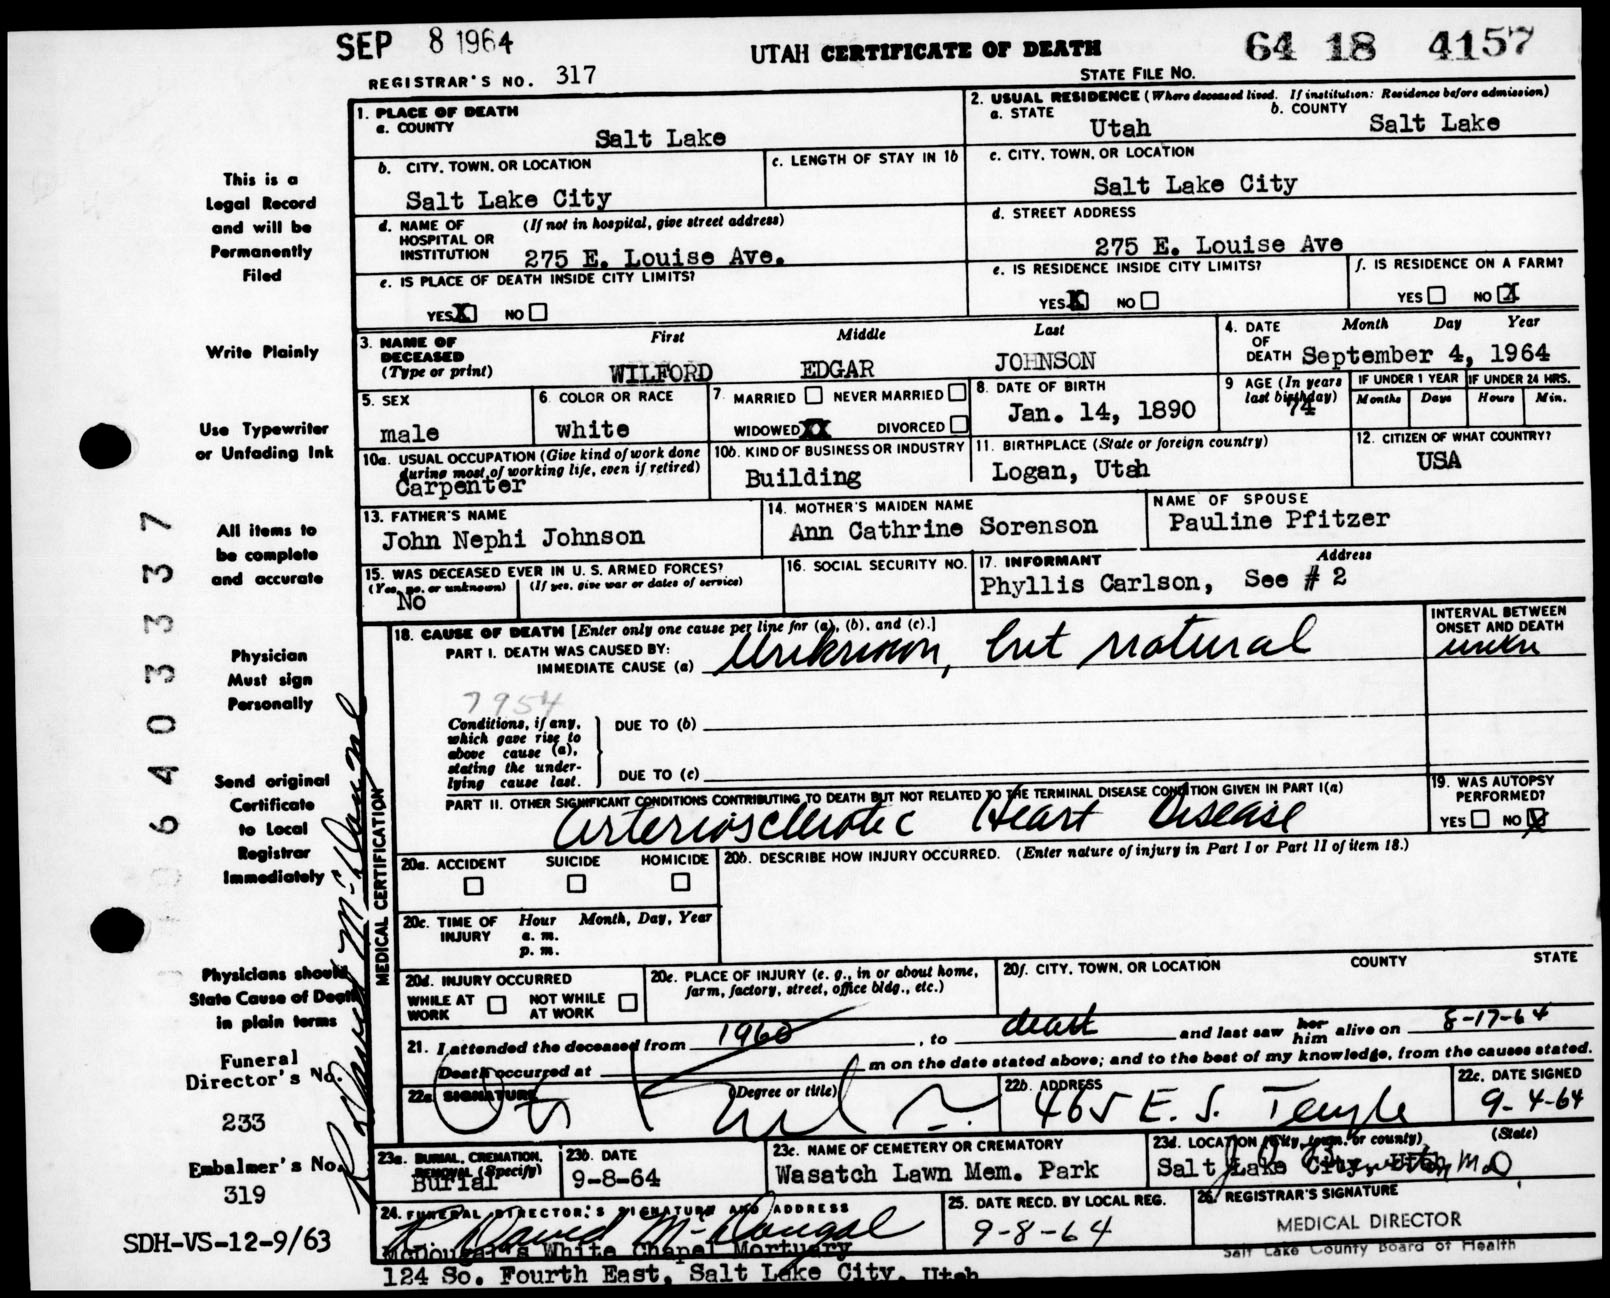 SEP 8 1964
UTAH CERTIFICATE OF DEATH
64 18 4157
REGISTRAR'S NO. 317
STATE FILE NO.
1. PLACE OF DEATH
a. COUNTY
Salt Lake
2. USUAL RESIDENCE (Where deceased lived. If institution: Residence before admission)
a. STATE
Utah
b. COUNTY
Salt Lake
b. CITY, TOWN, OR LOCATION
Salt Lake City
c. LENGTH OF STAY IN 1b
c. CITY, TOWN, OR LOCATION
Salt Lake City
d. NAME OF HOSPITAL OR INSTITUTION
(If not in hospital, give street address)
275 E. Louise Ave.
d. STREET ADDRESS
275 E. Louise Ave
e. IS PLACE OF DEATH INSIDE CITY LIMITS?
YES X NO
e. IS RESIDENCE INSIDE CITY LIMITS?
YES X NO
f. IS RESIDENCE ON A FARM?
YES NO X
3. NAME OF DECEASED (Type or print)
First Middle Last
WILFORD EDGAR JOHNSON
4. DATE OF DEATH
Month Day Year
September 4, 1964
5. SEX
male
6. COLOR OR RACE
white
7. MARRIED NEVER MARRIED
WIDOWED XX DIVORCED
8. DATE OF BIRTH
Jan. 14, 1890
9 AGE (In years last birthday)
74
IF UNDER 1 YEAR
Months Days
IF UNDER 24 HRS.
Hours Min.
10a. USUAL OCCUPATION (Give kind of work done during most of working life, even if retired)
Carpenter
10b. KIND OF BUSINESS OR INDUSTRY
Building
11. BIRTHPLACE (State or foreign country)
Logan, Utah
12. CITIZEN OF WHAT COUNTRY?
USA
13. FATHER'S NAME
John Nephi Johnson
14. MOTHER'S MAIDEN NAME
Ann Cathrine Sorenson
NAME OF SPOUSE
Pauline Pfitzer
15. WAS DECEASED EVER IN U. S. ARMED FORCES?
(Yes, no, or unknown) (If yes, give war or dates of service)
No
16. SOCIAL SECURITY NO.
17. INFORMANT Address
Phyllis Carlson, See # 2
18. CAUSE OF DEATH [Enter only one cause per line for (a), (b), and (c).]
PART I. DEATH WAS CAUSED BY:
IMMEDIATE CAUSE (a) Unknown, but natural
INTERVAL BETWEEN ONSET AND DEATH
7954
Conditions, if any, which gave rise to above cause (a), stating the underlying cause last.
DUE TO (b)
DUE TO (c)
PART II. OTHER SIGNIFICANT CONDITIONS CONTRIBUTING TO DEATH BUT NOT RELATED TO THE TERMINAL DISEASE CONDITION GIVEN IN PART I(a)
Arteriosclerotic Heart Disease
19. WAS AUTOPSY PERFORMED?
YES NO
20a. ACCIDENT SUICIDE HOMICIDE
20b. DESCRIBE HOW INJURY OCCURRED. (Enter nature of injury in Part I or Part II of item 18.)
20c. TIME OF INJURY
Hour Month, Day, Year
a. m.
p. m.
20d. INJURY OCCURRED
WHILE AT WORK NOT WHILE AT WORK
20e. PLACE OF INJURY (e. g., in or about home, farm, factory, street, office bldg., etc.)
20f. CITY, TOWN, OR LOCATION COUNTY STATE
21. I attended the deceased from 1960, to death and last saw her him alive on 8-17-64
Death occurred at m on the date stated above; and to the best of my knowledge, from the causes stated.
22a. SIGNATURE (Degree or title)
22b. ADDRESS
465 E. S. Temple
22c. DATE SIGNED
9-4-64
23a. BURIAL, CREMATION, REMOVAL (Specify)
Burial
23b. DATE
9-8-64
23c. NAME OF CEMETERY OR CREMATORY
Wasatch Lawn Mem. Park
23d. LOCATION (City, town, or county) (State)
Salt Lake City, Utah
24. FUNERAL DIRECTOR'S SIGNATURE AND ADDRESS
R. David McDougal
McDougal's White Chapel Mortuary
124 So. Fourth East, Salt Lake City, Utah
25. DATE RECD. BY LOCAL REG.
9-8-64
26. REGISTRAR'S SIGNATURE
MEDICAL DIRECTOR
Salt Lake County Board of Health
This is a
Legal Record
and will be
Permanently
Filed
Write Plainly
Use Typewriter
or Unfading Ink
All items to
be complete
and accurate
Physician
Must sign
Personally
Send original
Certificate
to Local
Registrar
Immediately
Physicians should
State Cause of Death
in plain terms
Funeral
Director's No.
233
Embalmer's No.
319
SDH-VS-12-9/63
MEDICAL CERTIFICATION
R. David McDougal
6403337